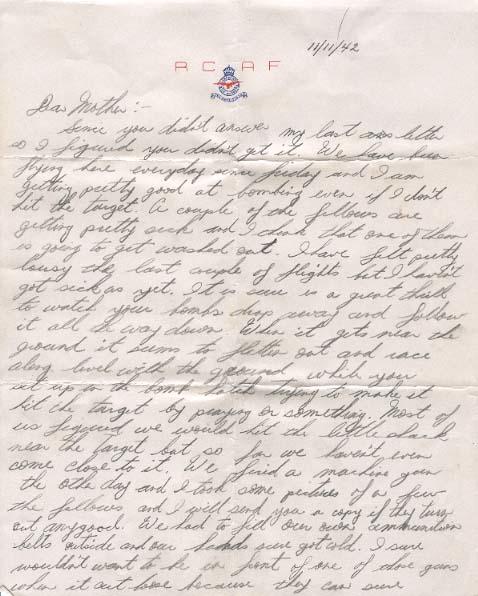 11/11/42
RCAF
Dear Mother:-
Since you didn't answer my last letter
so I figured you didn't get it. We have been
flying here everyday since friday and I am
getting pretty good at bombing even if I don't
hit the target. A couple of the fellows are
getting pretty sick and I think that one of them
is going to get washed out. I have felt pretty
lousy the last couple of flights but I haven't
got sick as yet. It is sure is a great thrill
to watch your bombs drop away and follow
it all the way down. When it gets near the
ground it seems to flatten out and race
along level with the ground while you
sit up in the bomb trying to make it
hit the target by praying or something. Most of
us figured we would hit the little shack
near the target but so far we haven't even
come close to it. We fired a machine gun
the other day and I took some pictures of a few
the fellows and I will send you a copy if they turn
out anygood. We had to fill our own ammunition
belts outside and our hands sure got cold. I sure
wouldn't want to be in front of one of those guns
when it cut loose because they can sure